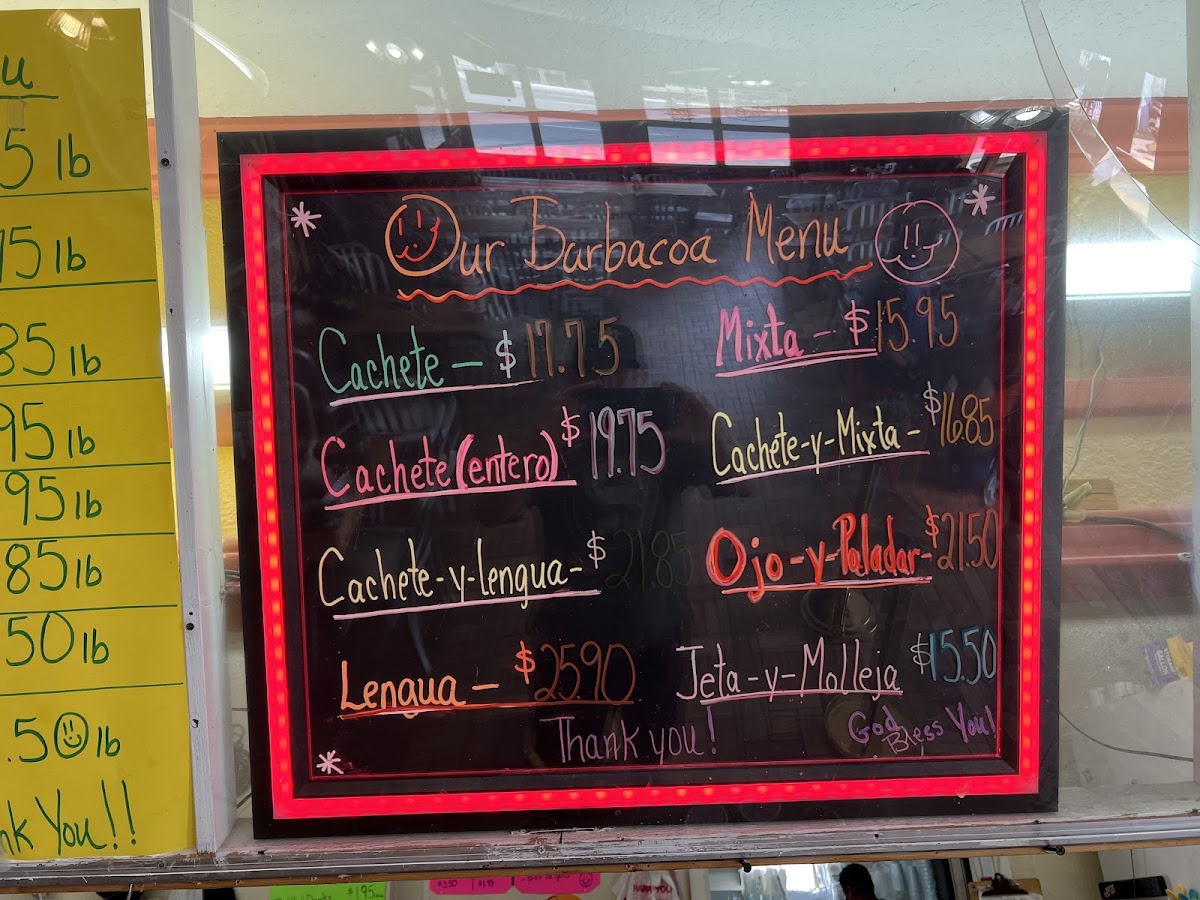 u
5 lb
75 lb
85 lb
95 lb
95 lb
85 lb
50 lb
.50 lb
nk You!!
Our Barbacoa Menu
Cachete - $17.75
Cachete (entero) $19.75
Cachete-y-lengua - $21.85
Lengua - $25.90
Mixta - $15.95
Cachete-y-Mixta - $16.85
Ojo-y-Paladar - $21.50
Jeta-y-Molleja $15.50
Thank you!
God Bless You!
$1.95
$3.50
THANK YOU